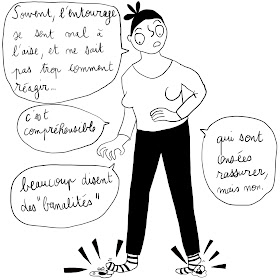 Souvent, l'entourage
se sent mal à
l'aise, et ne sait
pas trop comment
réagir...
c'est
compréhensible
beaucoup disent
des "banalités"
qui sont
censées
rassurer,
mais non.